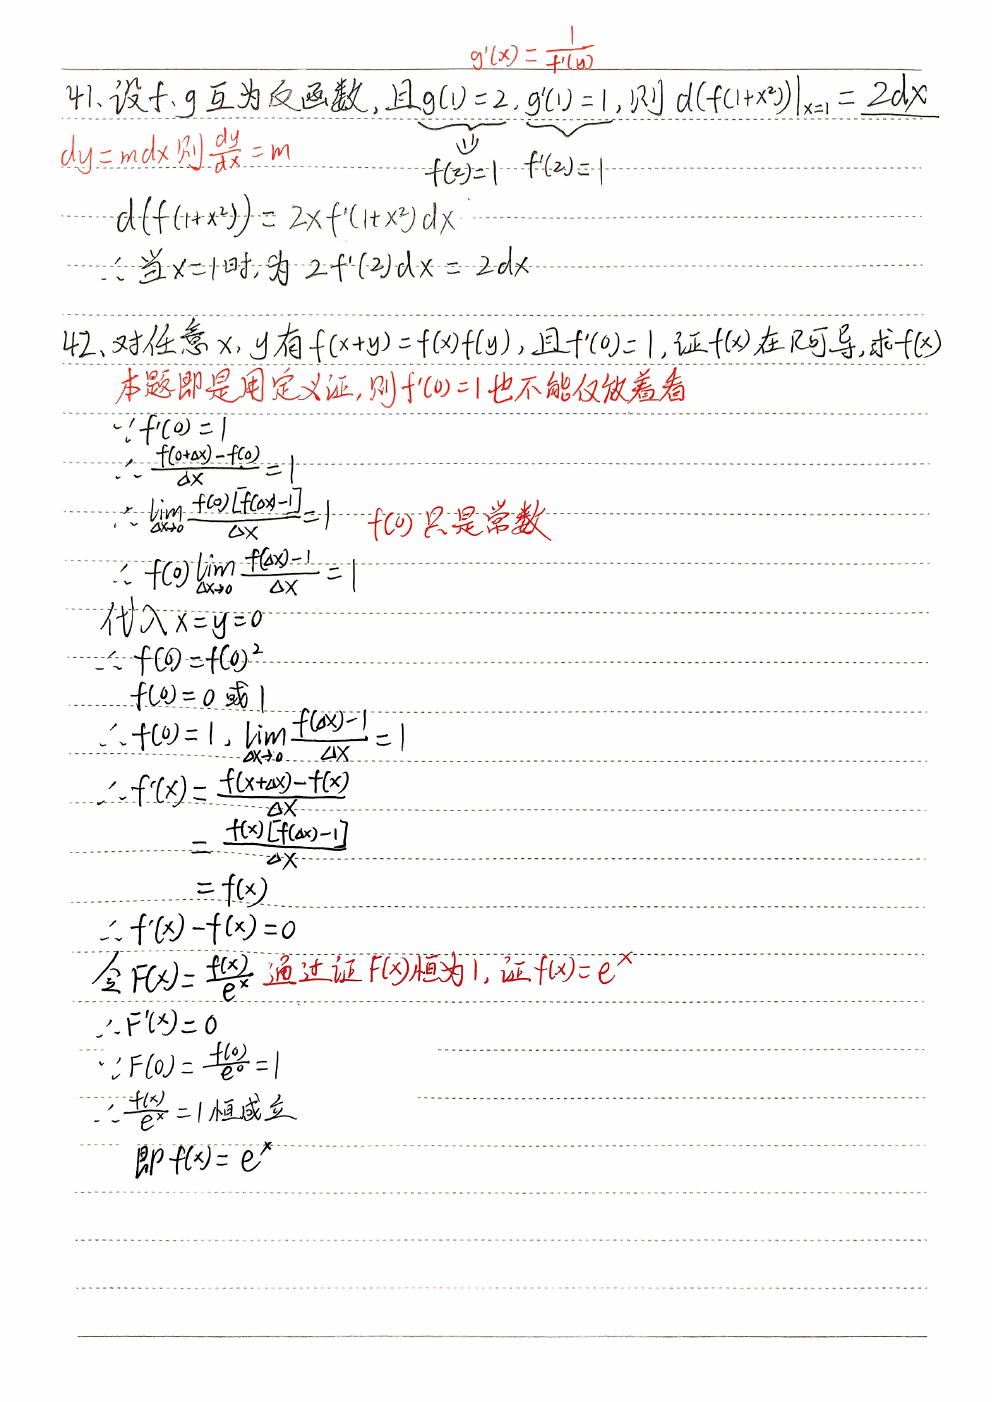 g'(x) = 1/f'(y)
41、设f、g互为反函数,且g(1)=2,g'(1)=1,则 d(f(1+x²))|x=1 = 2dx
dy=mdx则dy/dx=m
f(2)=1 f'(2)=1
d(f(1+x²))=2xf'(1+x²)dx
∴当x=1时,为 2f'(2)dx=2dx
42、对任意x,y有f(x+y)=f(x)f(y),且f'(0)=1,证f(x)在R可导,求f(x)
本题即是用定义证,则f'(0)=1也不能仅放着看
∵f'(0)=1
∴ f(0+Δx)-f(0)/Δx =1
∴ lim Δx→0 f(0)[f(Δx)-1]/Δx =1 f(0)只是常数
∴ f(0) lim Δx→0 f(Δx)-1/Δx =1
代入x=y=0
∴ f(0)=f(0)²
f(0)=0或1
∴f(0)=1, lim Δx→0 f(Δx)-1/Δx =1
∴f'(x)= f(x+Δx)-f(x)/Δx
= f(x)[f(Δx)-1]/Δx
= f(x)
∴f'(x)-f(x)=0
令F(x)= f(x)/eˣ 通过证F(x)恒为1,证f(x)=eˣ
∴F'(x)=0
∵F(0)= f(0)/e⁰ =1
∴ f(x)/eˣ =1恒成立
即f(x)=eˣ